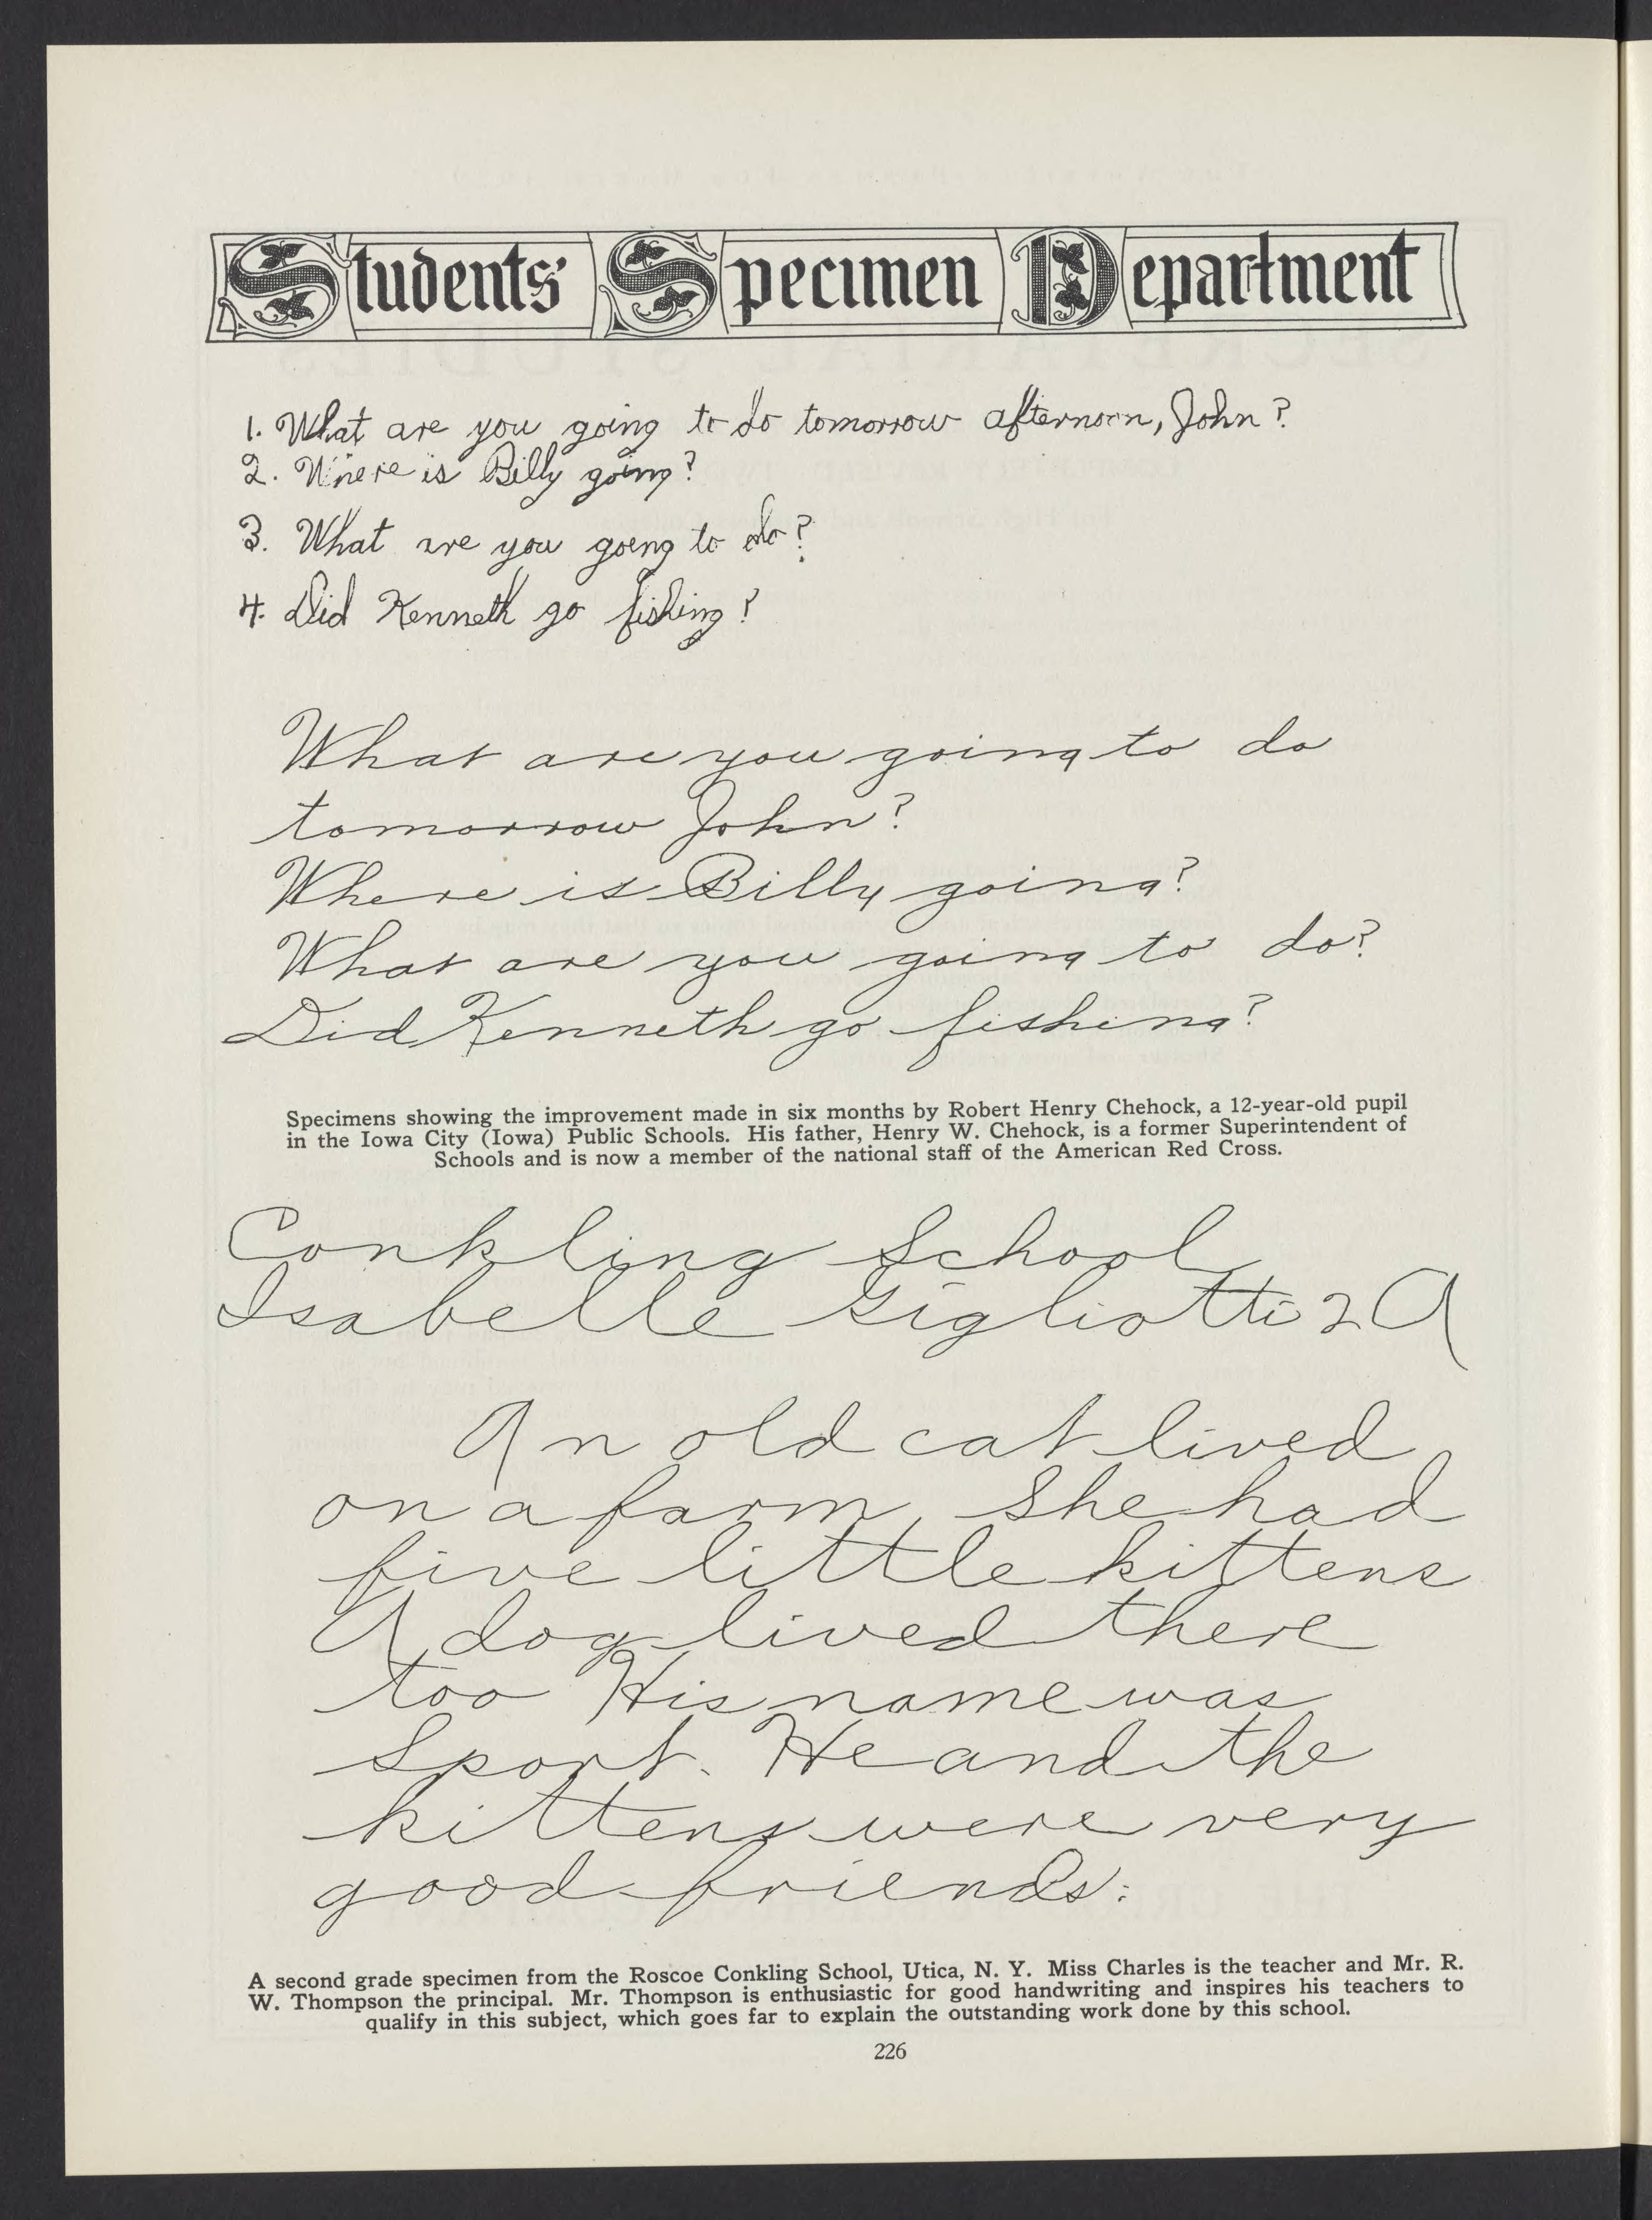 Students' Specimen Department
1. What are you going to do tomorrow afternoon, John?
2. Where is Billy going?
3. What are you going to do?
4. Did Kenneth go fishing?
What are you going to do
tomorrow John?
Where is Billy going?
What are you going to do?
Did Kenneth go fishing?
Specimens showing the improvement made in six months by Robert Henry Chehock, a 12-year-old pupil
in the Iowa City (Iowa) Public Schools. His father, Henry W. Chehock, is a former Superintendent of
Schools and is now a member of the national staff of the American Red Cross.
Conkling School
Isabelle Gigliotti 2A
An old cat lived
on a farm. She had
five little kittens
A dog lived there
too His name was
Sport. He and the
kittens were very
good friends.
A second grade specimen from the Roscoe Conkling School, Utica, N. Y. Miss Charles is the teacher and Mr. R.
W. Thompson the principal. Mr. Thompson is enthusiastic for good handwriting and inspires his teachers to
qualify in this subject, which goes far to explain the outstanding work done by this school.
226